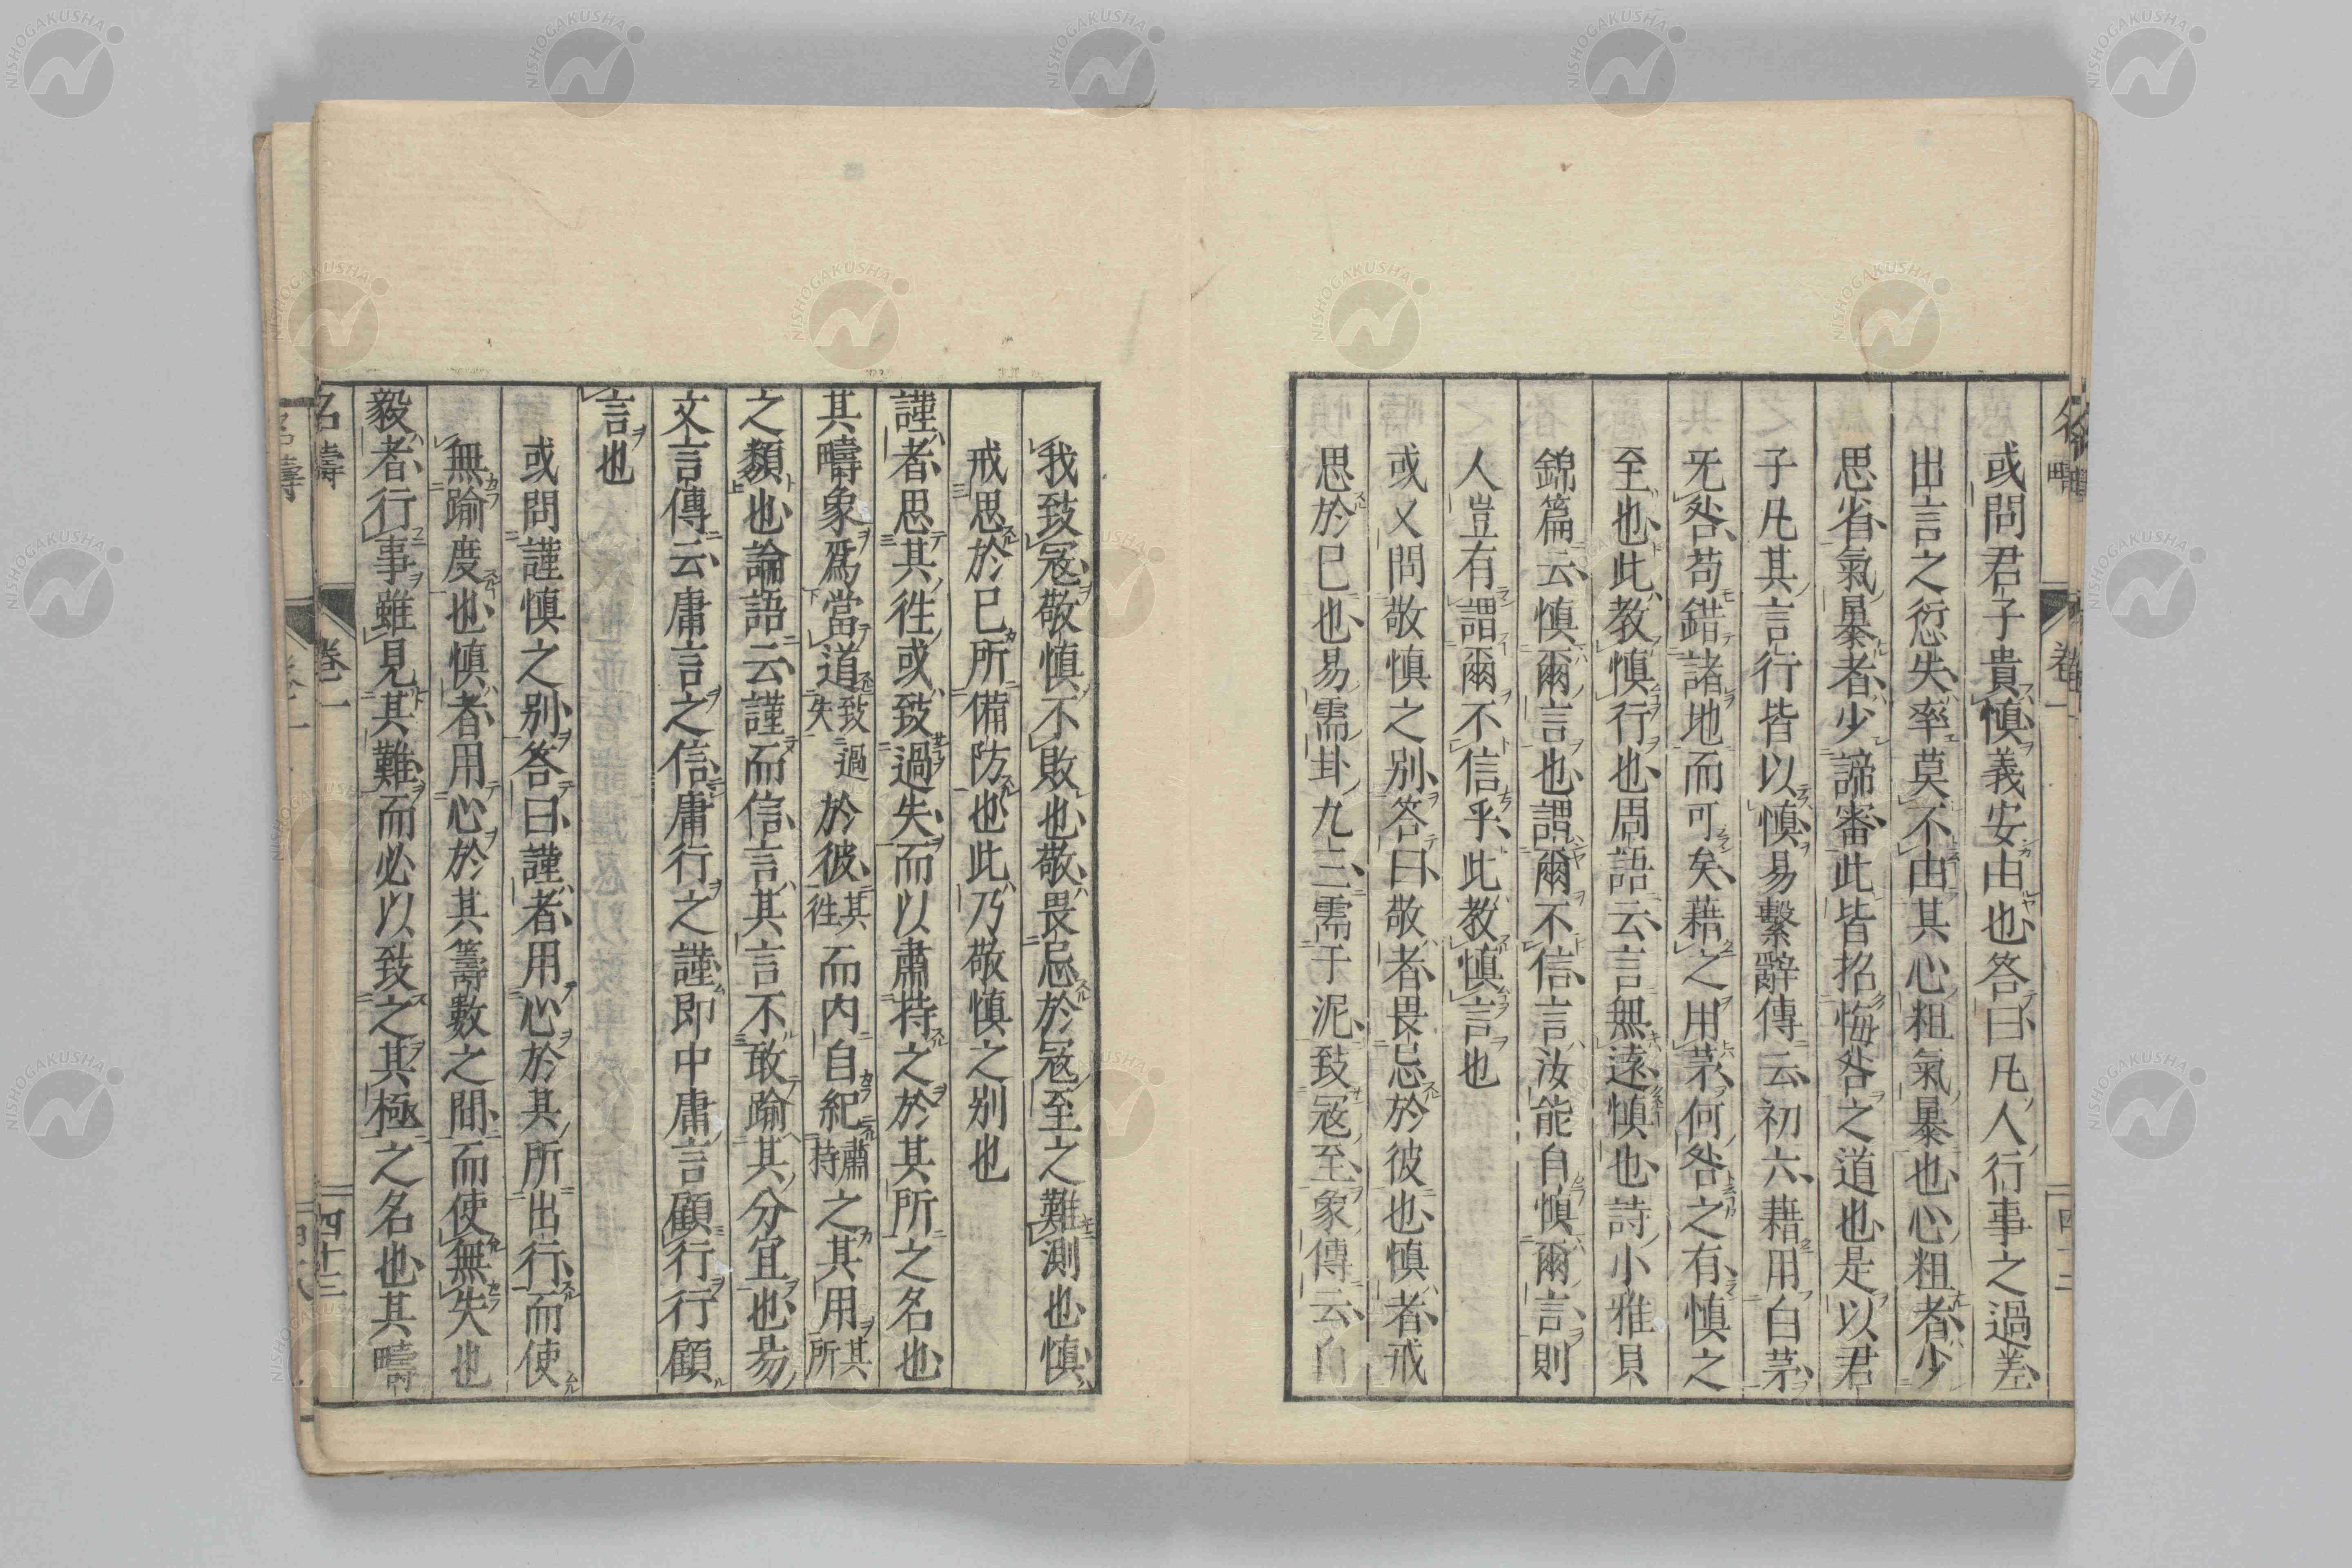 或問君子貴慎義安由也答曰凡人行事之過差
出言之愆失率莫不由其心粗氣暴也心粗者少
思省氣暴者少諦審此皆招悔咎之道也是以君
子凡其言行皆以慎易繫辭傳云初六藉用白茅
无咎苟錯諸地而可矣藉之用茅何咎之有慎之
至也此教慎行也周語云言無遠慎也詩小雅貝
錦篇云慎爾言也謂爾不信言汝能自慎爾言則
人豈有謂爾不信乎此教慎言也
或又問敬慎之別答曰敬者畏忌於彼也慎者戒
思於已也易需卦九三需于泥致寇至象傳云自
我致寇敬慎不敗也敬畏忌於寇至之難測也慎
戒思於已所備防也此乃敬慎之別也
謹者思其徃或致過失而以肅持之於其所之名也
其疇象爲當道致過失於彼其徃而內自紀肅持之其用其所
之類也論語云謹而信言其言不敢踰其分宜也易
文言傳云庸言之信庸行之謹即中庸言顧行行顧
言也
或問謹慎之別答曰謹者用心於其所出行而使
無踰度也慎者用心於其籌數之間而使無失也
毅者行事雖見其難而必以致之其極之名也其疇
名疇 卷一 四十三
NISHOGAKUSHA